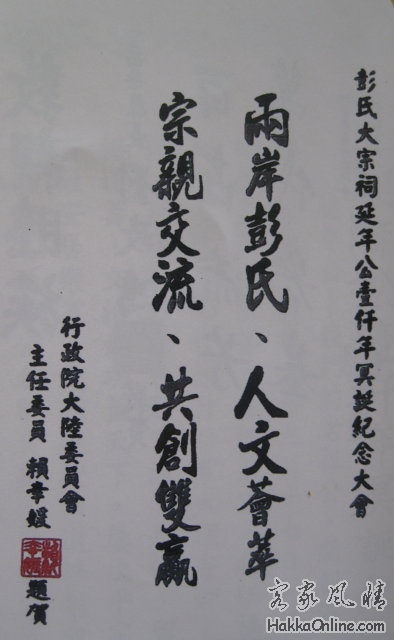 彭氏大宗祠延年公壹仟年冥誕紀念大會
兩岸彭氏、人文薈萃
宗親交流、共創雙贏
行政院大陸委員會
主任委員 賴幸媛 題賀
客家風情
HakkaOnline.com